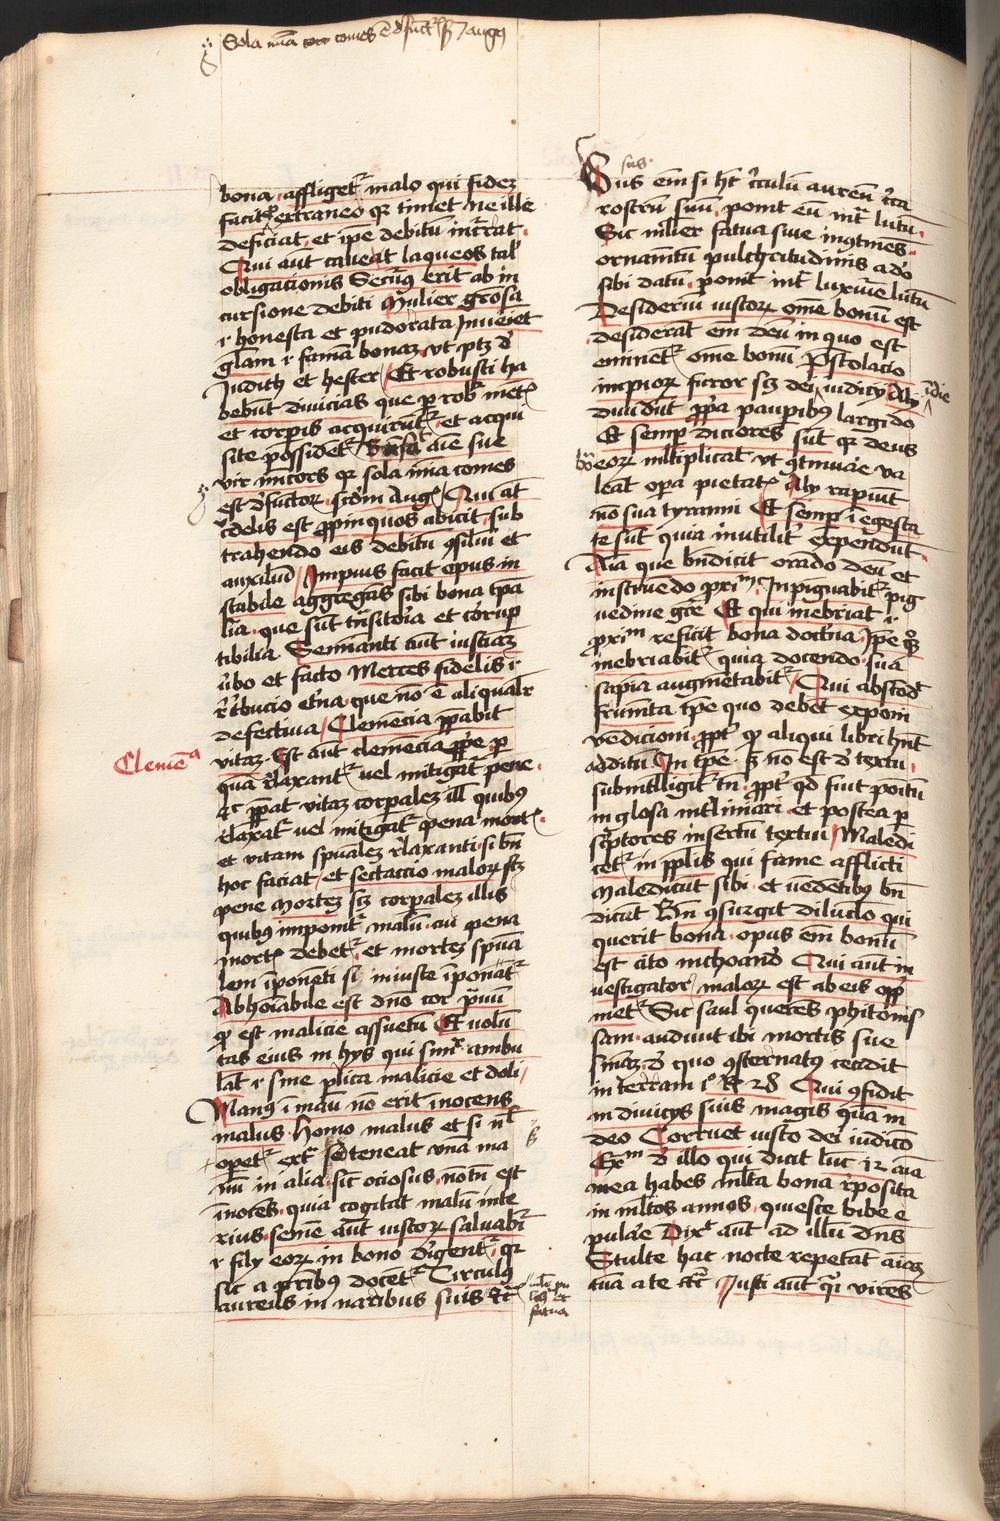 Sola mīa comes ē dfūctoꝝ ßꝫ augꝰ
bona · affligetᷣ malo qui fidez
facit ꝓ extraneo qꝛ timet ne ille
deficiat · et ip̄e debitū int̄rat ·
Qui aūt caueat laqueos tal'
obligacionis Secur̄ꝰ erit ab in
cursione debiti Mulier gr̄osa
ꝛ honesta et pudorata Inueiet
gl̄am ꝛ famā bonaz · vt ptꝫ d̄
Judith et hester / Et robusti ha
bebūt diuicias que ꝑ rob᷑ mēt᷑
et corꝑis acquirūtᷣ · et acqui
site possidētᷣ Bn̄fac̄ aīe sue
vir mīcors qꝛ sola mīa comes
est dfuctoꝝ · scd̄m Aug᷑ / Qui āt
c̄delis est ꝓpinquos abicit · sub
trahendo eis debitū ꝯsiliū et
auxiliū / Impius facit opus in
stabile aggregās sibi bona tpa
lia · que sūt trāsitoria et corup
tibilia Seminanti aūt iusticiaz
v̄bo et facto Merces fidelis ꝛ
r̄t̄bucio et̄na · que nō ē aliqualr̄
defectiua / Clemēcia p̄ꝑabit
Clemēᵃ
vitaz · Est aūt clemēcia ꝓpe · ꝑ
quā r̄laxantᷣ uel mitigātᷣ pene ·
ꝛc p̄ꝑat vitaz corꝑalez ill' quibꝰ
r̄laxatᷣ uel mitigatᷣ pena mort᷑ ·
et vitam spūalez r̄laxanti · si bn̄
hoc faciat / et sectaccio maloꝝ sꝫ
pene mortez sꝫ corꝑalez illis
quibꝰ imponitᷣ malū · cui pena
mort᷑ debetᷣ · et mortez spūa
lem īponēti si iniuste īponātᷣ
Abhoīabile est dn̄o cor p̄uū
qꝫ est malicie assuetū Et uolū
tas eius in hys qui simᷣ ambu
lāt ꝛ sine pl̄ica malicie et doli /
Manꝰ ī manū nō erit īnocens
malus · homo malus et si nl̄
opetᷣ ext᷑ sed teneat vnā ma
nū in alia · sic̄ ociosus · nō tn̄ est
īnocēs · quia cogitat malū inte
rius · semē aūt iustoꝝ saluabitᷣ
ꝛ filij eoꝝ in bono dirigentᷣ · qꝛ
sic a pr̄ibus docētᷣ Circulꝰ
aureus in naribus suis ꝛc̄
ml̄r pu
lcᵃ et
fatua
Sus em̄ si hꝫ c̄culū aureū c̄ca
rostrū suū · ponit eū int᷑ lutū ·
Sic ml̄ier fatua siue incōtinēs ·
ornamētū pulchritudinis a deo
sibi datū · ponit int᷑ luxurie lutū
Desideriū iustoꝝ om̄e bonū est
desiderāt em̄ deū in quo est
eminētᷣ om̄e bonū Prestolacio
impioꝝ furor sꝫ dei iudicij / Alij
diuidūt ꝓpa pauꝑibꝰ largiendo
Et semꝑ diciores sūt qꝛ deus
bona eoꝝ mltiplicat vt ꝯtinuare va
leāt oꝑa pietat᷑ Aly rapiunt
nō sua tyranni Et semꝑ ī egesta
te sūt quia inutilit᷑ expendūt ·
Aīa que bn̄dicit orādo deū et
instruendo ꝓxīm · Inpiguabitᷣ pig
uedine grē Et qui inebriat ꝛ
ꝓxīm reficit bona doct̄na · Ip̄e qꝫ
inebriabitᷣ quia docendo · sua
sapīa augmētabitᷣ / Qui abscōdit
frumēta tp̄e quo debēt exponi
vēdicioni · ꝓpt᷑ qꝫ aliqui libri hn̄t
additū In tp̄e · ß nō est d̄ textu ·
subintlligitᷣ tn̄ · ꝓpt᷑ qd̄ fuit poītū
in glosa intliniari · et postea ꝑ
sc̄ptores insertū textui / Maledi
cetᷣ in ppl̄is qui fame afflicti
maledicūt sibi · et uēdētibꝰ bn̄
dicūt Bn̄ ꝯsurgit diluclo qui
querit bona · opus em̄ bonū
est cito inchoand̄ Qui aūt in
uestigator / maloꝝ est ab eis opp̄
metᷣ Sic saul querēs phitonis
sam · audiuit ibi mortis sue
snīaz · d̄ quo ꝯsternatꝰ cecidit
in terram j° R̄ 28 Qui ꝯfidit
in diuicijs suis magis quā in
deo Corruet iusto dei iudico
Exᵐ d̄ illo qui dicit luc̄ · 12 aīa
mea habes ml̄ta bona r̄posita
in ml̄tos annos · quiesce bibe e
pulare Dix᷑ aūt ad illū dn̄s
Stulte hac nocte repetāt aīaz
tuā a te ꝛc̄ Iusti aūt qi virēs